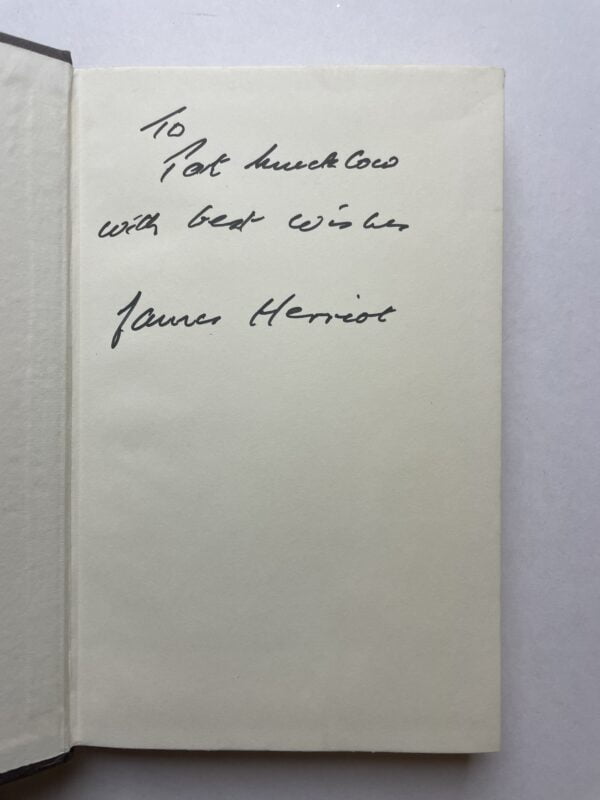 To
Pat Mucklow
with best wishes
James Herriot